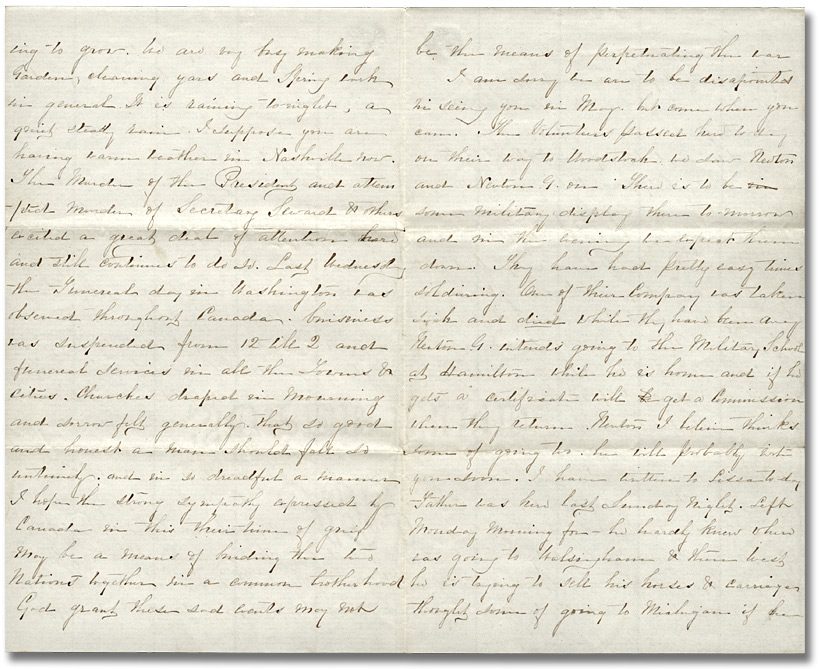 ing to grow. We are very busy making
Garden, cleaning yars and Spring work
in general. It is raining to-night, a
quiet steady rain. I suppose you are
having warm weather in Nashville now.
The Murder of the President and attem
-pted Murder of Secretary Seward & others
excited a great deal of attention here
and still continues to do so. Last Wednesday
the Funeral day in Washington was
observed throughout Canada. business
was suspended from 12 till 2 and
funeral services in all the Towns &
Cities. Churches draped in Mourning
and sorrow felt generally that so good
and honest a man should fall so
untimely and in so dreadful a manner
I hope the strong sympathy expressed by
Canada in this their time of grief
May be a means of binding the two
Nations together in a common brotherhood
God grant these sad events may not
be the means of perpetuating the war
I am sorry we are to be disapointed
in seeing you in May. but come when you
can. The Volunteers passed here to-day
on their way to Woodstock we saw Newton
and Newton G. on There is to be
some military display there to-morrow
and in the evening we expect them
down. They have had pretty easy times
soldiering. One of their Company was taken
sick and died while they have been away
Newton G. intends going to the Military School
at Hamilton while he is home and if he
gets a certificate will get a Commission
when they return. Newton I believe thinks
some of going too. he will probably not
go soon. I have written to Lissa to day
Father was here last Sunday Night. Left
Monday Morning for - he hardly knew where
was going to Walsingham & then west
he is trying to sell his horses & carriages
thought some of going to Michigan if he